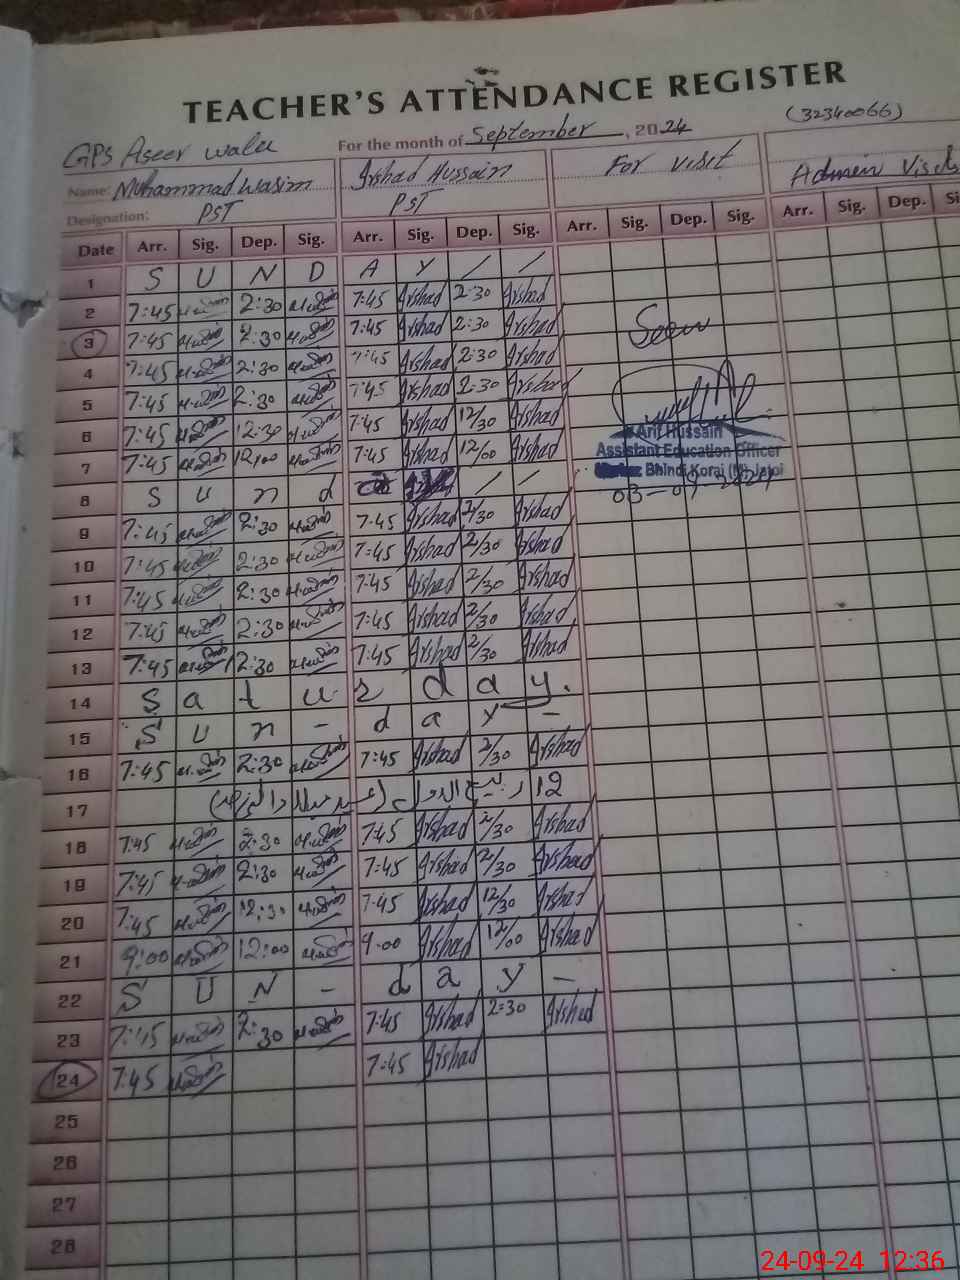 TEACHER'S ATTENDANCE REGISTER
(32340066)
GPS Aseer wala For the month of September, 2024
Name: Muhammad Wasim Irshad Hussain For visit Admin Visit
Designation: PST PST
Date Arr. Sig. Dep. Sig. Arr. Sig. Dep. Sig. Arr. Sig. Dep. Sig. Arr. Sig. Dep. Si
1 S U N D A Y / /
2 7:45 2:30 7:45 Irshad 2:30 Irshad
3 7:45 2:30 7:45 Irshad 2:30 Irshad Seen
4 7:45 2:30 7:45 Irshad 2:30 Irshad
5 7:45 2:30 7:45 Irshad 2:30 Irshad
6 7:45 12:30 7:45 Irshad 12/30 Irshad Arif Hussain
7 7:45 12:00 7:45 Irshad 12/00 Irshad Assistant Education Officer
Markaz Bhindi Korai (M) Jatoi
8 S u n d / / 03-09-2024
9 7:45 2:30 7:45 Irshad 2/30 Irshad
10 7:45 2:30 7:45 Irshad 2/30 Irshad
11 7:45 2:30 7:45 Irshad 2/30 Irshad
12 7:45 2:30 7:45 Irshad 2/30 Irshad
13 7:45 2:30 7:45 Irshad 2/30 Irshad
14 S a t u r d a y.
15 S U n - d a y -
16 7:45 2:30 7:45 Irshad 2/30 Irshad
17 12 ربیع الاول (عید میلاد النبی)
18 7:45 2:30 7:45 Irshad 2/30 Irshad
19 7:45 2:30 7:45 Irshad 2/30 Irshad
20 7:45 12:30 7:45 Irshad 12/30 Irshad
21 9:00 12:00 9:00 Irshad 12/00 Irshad
22 S U N - d a y -
23 7:45 2:30 7:45 Irshad 2:30 Irshad
24 7:45 7:45 Irshad
25
26
27
28
24-09-24 12:36